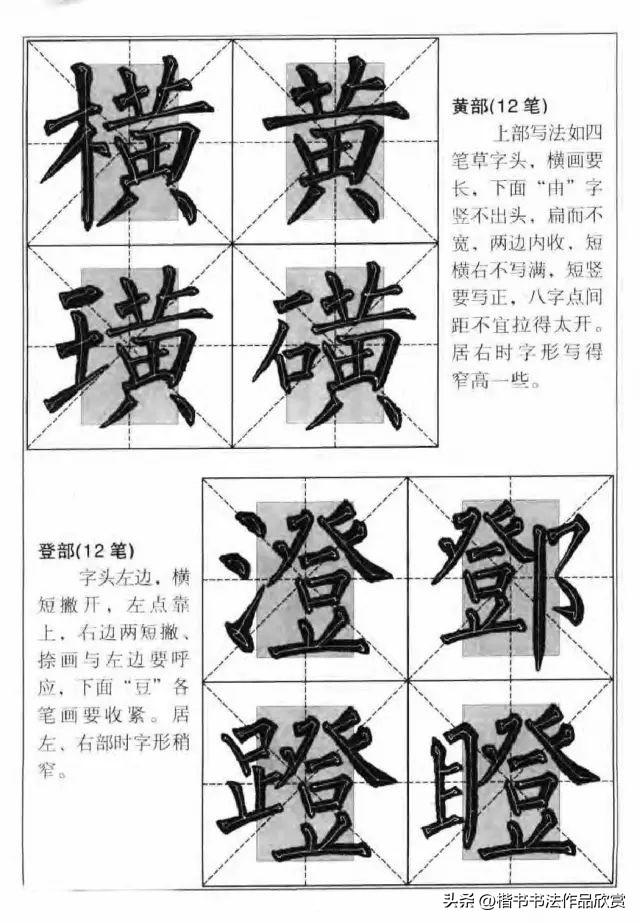 横黄
璜磺
黄部(12笔)
上部写法如四
笔草字头，横画要
长，下面“由”字
竖不出头，扁而不
宽，两边内收，短
横右不写满，短竖
要写正，八字点间
距不宜拉得太开。
居右时字形写得
窄高一些。
登部(12笔)
字头左边，横
短撇开，左点靠
上，右边两短撇、
捺画与左边要呼
应，下面“豆”各
笔画要收紧。居
左、右部时字形稍
窄。
澄鄧
蹬瞪
头条@楷书书法作品欣赏